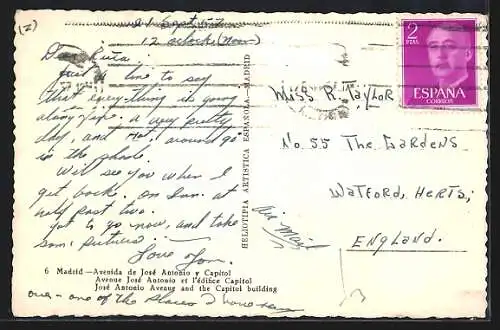 (2)
21 Sept, 57
12 oclock (Noon)
Dear Rita,
Just a line to say
that everything is going
along fine. a very pretty
day, and around 90
in the shade.
Will see you when I
get back. on Sun. at
half past two.
got to go now, and take
some pictures.
Love
6 Madrid—Avenida de José Antonio y Capitol
Avenue José Antonio et l'édifice Capitol
José Antonio Avenue and the Capitol building
over - one of the places I have
HELIOTIPIA ARTISTICA ESPAÑOLA—MADRID
2
PTAS
ESPAÑA
CORREOS
Miss R. Taylor
No 55 The Gardens
Watford, Herts;
England.
Air Mail